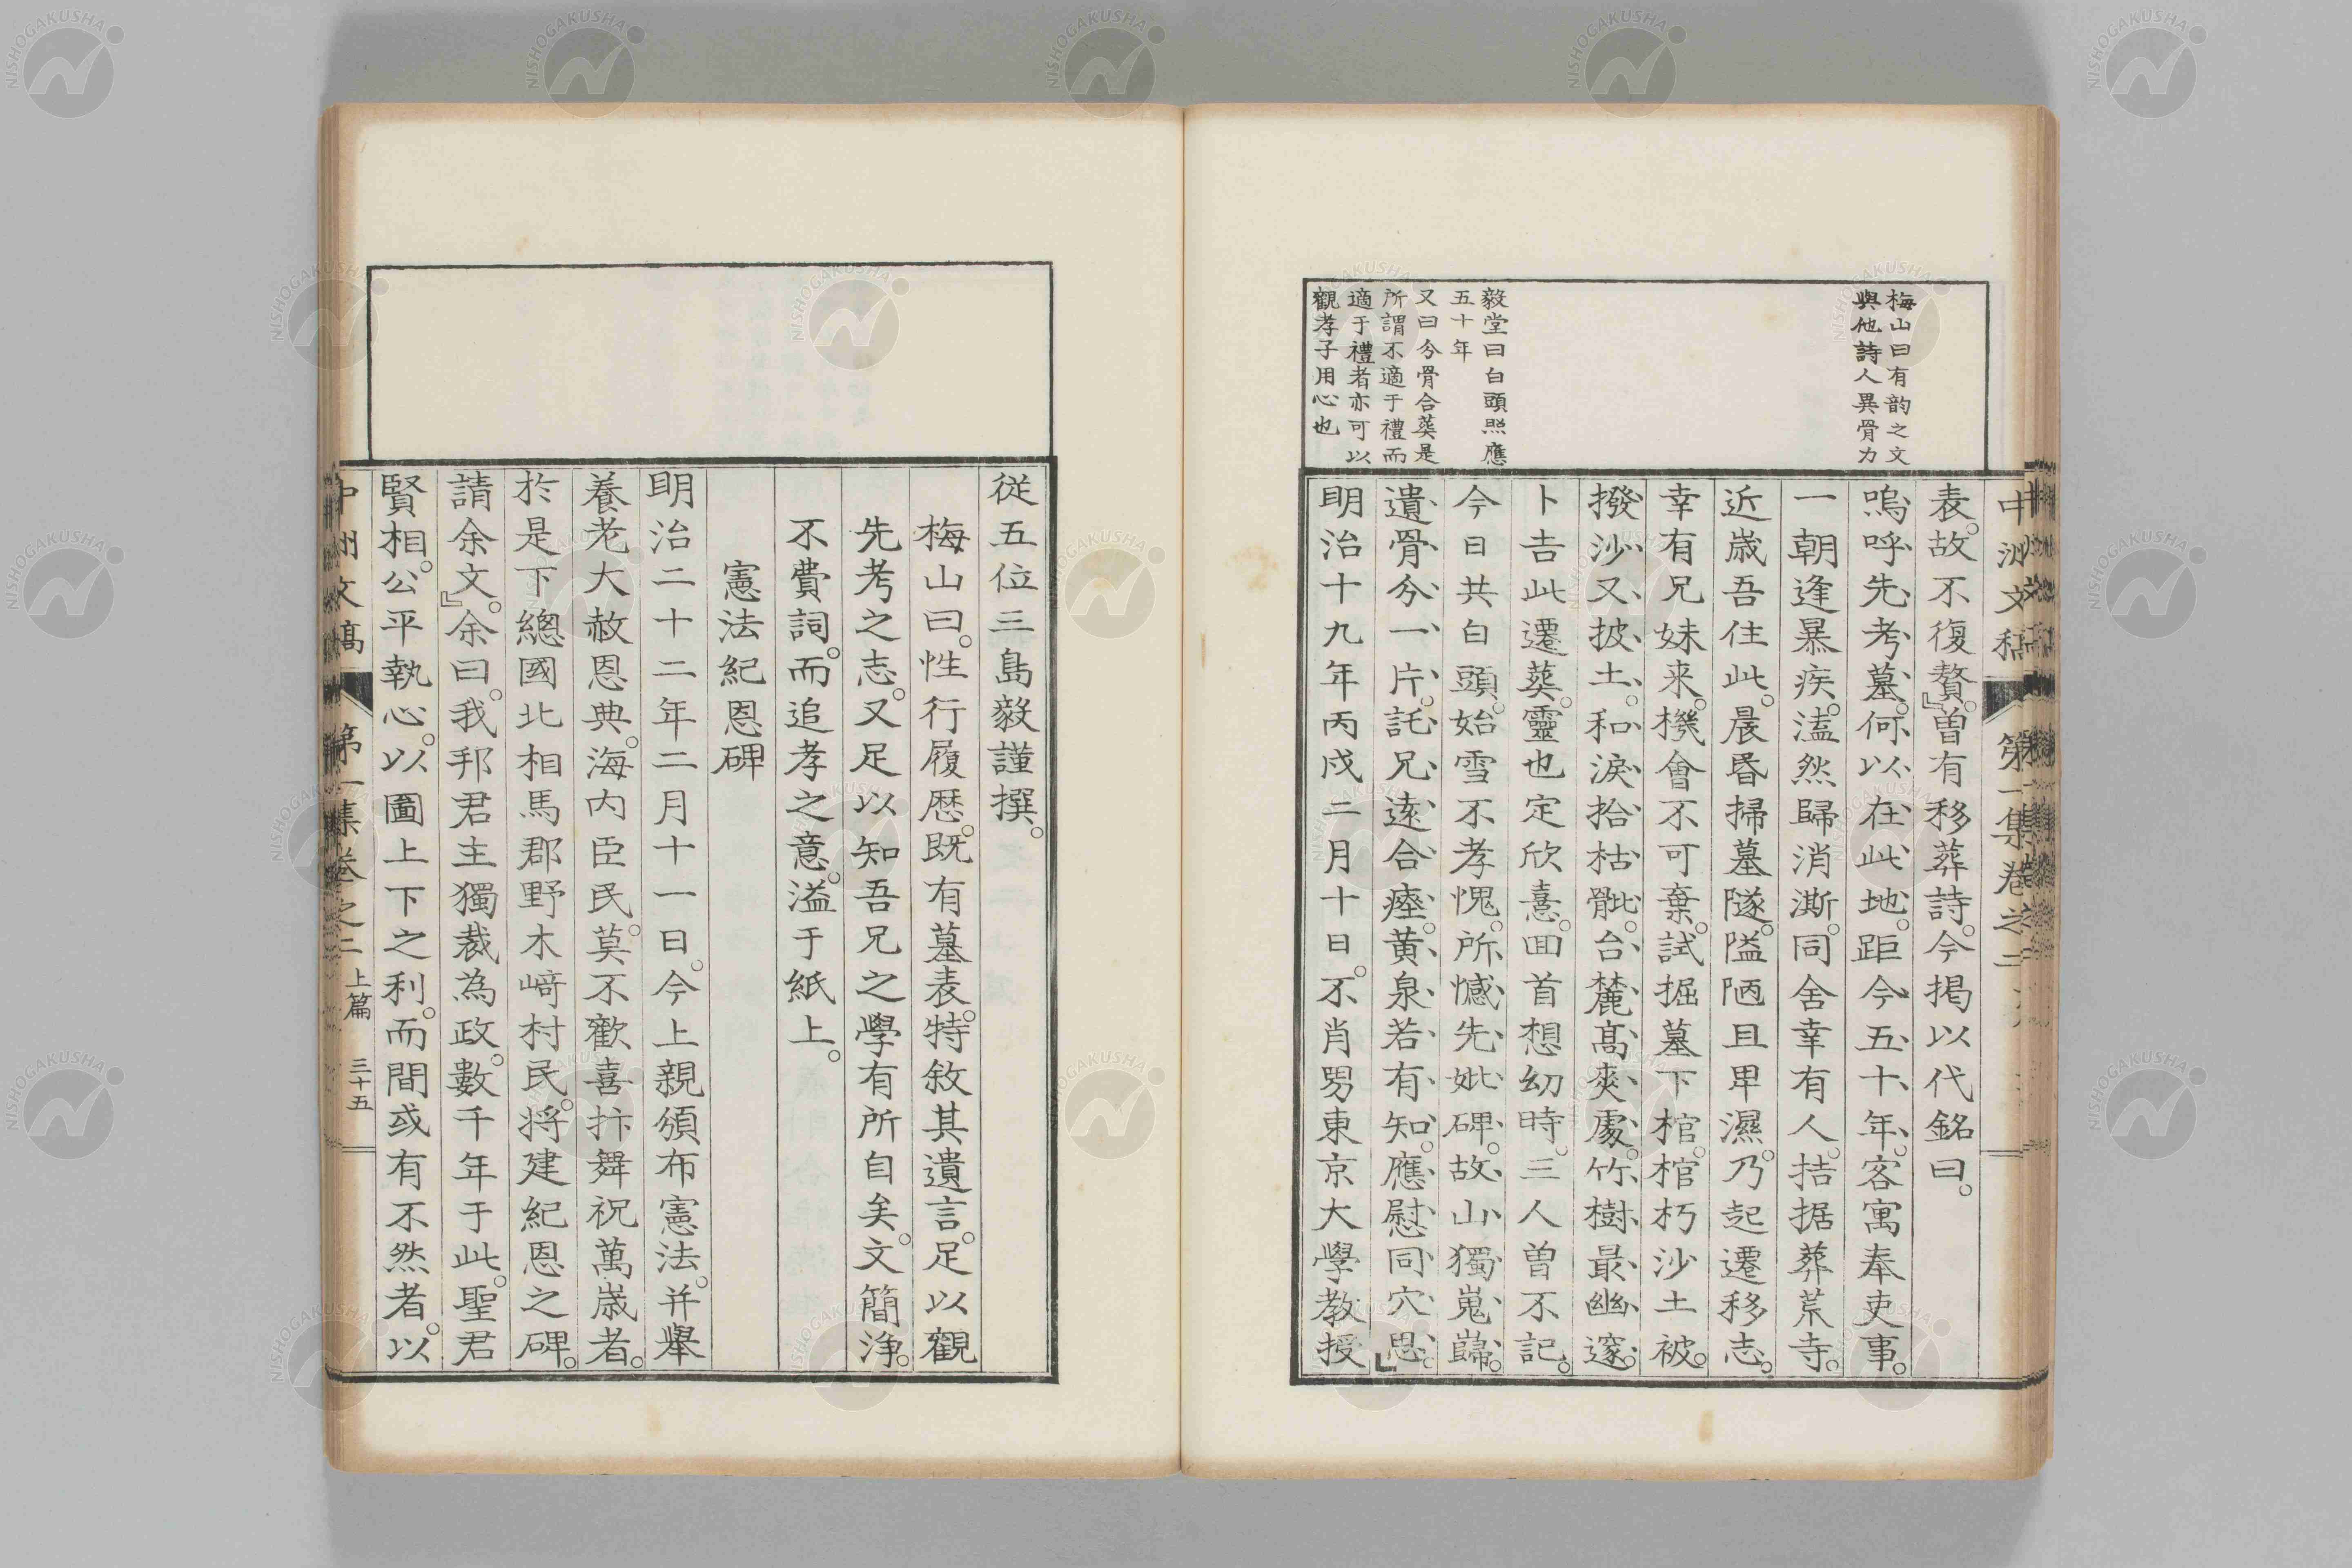 中洲文稿 第一集卷之二
梅山曰有韵之文
與他詩人異骨力
毅堂曰白頭照應
五十年
又曰今骨合葬是
所謂不適于禮而
適于禮者亦可以
觀孝子用心也
表。故不復贅。』曽有移葬詩。今掲以代銘曰。
嗚呼先考墓。何以在此地。距今五十年。客寓奉吏事。
一朝逢暴疾。溘然歸消澌。同舍幸有人。拮据葬荒寺。
近歳吾住此。晨昏掃墓隧。隘陋且卑濕。乃起遷移志。
幸有兄妹来。機會不可棄。試掘墓下棺。棺朽沙土被。
撥沙又披土。和淚拾枯骴。台麓高爽處。竹樹最幽邃。
卜吉此遷葬。靈也定欣憙。囬首想幼時。三人曽不記。
今日共白頭。始雪不孝愧。所憾先妣碑。故山獨嵬巋。
遺骨分一片。託兄遠合瘞。黄泉若有知。應慰同穴思。』
明治十九年丙戌二月十日。不肖男東京大學教授
従五位三島毅謹撰。
梅山曰。性行履歴。既有墓表。特敘其遺言。足以觀
先考之志。又足以知吾兄之學有所自矣。文簡浄。
不費詞。而追孝之意。溢于紙上。
憲法紀恩碑
明治二十二年二月十一日。今上親頒布憲法。并舉
養老大赦恩典。海内臣民。莫不歡喜抃舞祝萬歳者。
於是下總國北相馬郡野木﨑村民。将建紀恩之碑。
請余文。』余曰。我邦君主獨裁為政。數千年于此。聖君
賢相。公平執心。以圖上下之利。而間或有不然者。以
中洲文稿 第一集卷之二 上篇 三十五
NISHOGAKUSHA